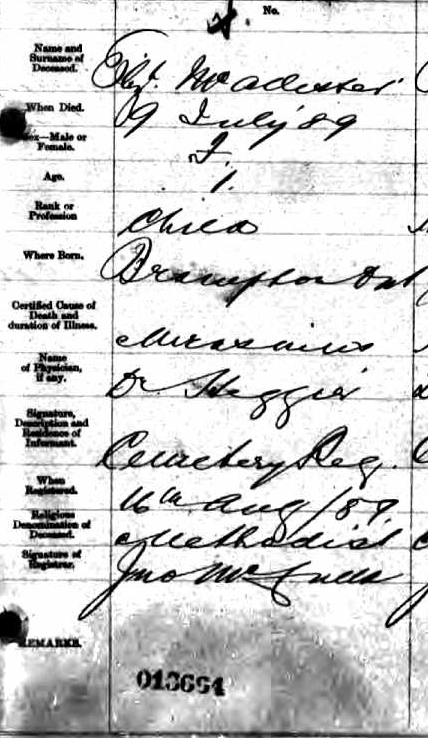 No.
4.
Name and Surname of Deceased.
Elizt. McAllester
When Died.
19 July 89
Sex—Male or Female.
F.
Age.
1.
Rank or Profession
Child
Where Born.
Brampton Ont
Certified Cause of Death and duration of Illness.
Marasmus
Name of Physician, if any.
Dr. Heggie
Signature, Description and Residence of Informant.
Cemetery Reg.
When Registered.
16th Aug / 89
Religious Denomination of Deceased.
Methodist
Signature of Registrar.
Jno McCulla
REMARKS.
013664